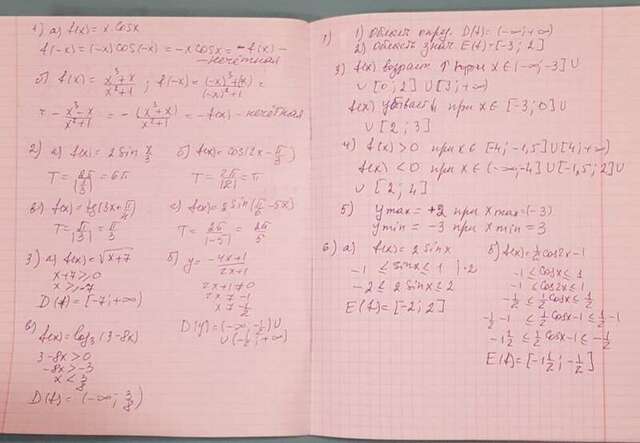 1) а) f(x) = x cosx
f(-x) = (-x) cos(-x) = -x cosx = -f(x) -
- нечётная
б) f(x) = x³+x / x²+1 ; f(-x) = (-x)³+(-x) / (-x)²+1 =
= -x³-x / x²+1 = - (x³+x) / x²+1 = -f(x) - нечётная
2) а) f(x) = 2 sin x/3 б) f(x) = cos(2x - π/3)
T = 2π / |1/3| = 6π T = 2π / |2| = π
в) f(x) = tg(3x + π/4) г) f(x) = 8 sin(π/6 - 5x)
T = π / |3| = π/3 T = 2π / |-5| = 2π/5
3) а) f(x) = √x+7 б) y = -4x+1 / 2x+1
x+7 ≥ 0 2x+1 ≠ 0
x ≥ -7 2x ≠ -1
D(f) = [-7; +∞) x ≠ -1/2
в) D(y) = (-∞; -1/2) ∪
f(x) = log₃(3-8x) ∪ (-1/2; +∞)
3-8x > 0
-8x > -3
x < 3/8
D(f) = (-∞; 3/8)
1) Область опред. D(f) = (-∞; +∞)
2) Область знач. E(f) = [-3; 2]
3) f(x) возраст ↑ при x ∈ (-∞; -3] ∪
∪ [0; 2] ∪ [3; +∞)
f(x) убывает ↓ при x ∈ [-3; 0] ∪
∪ [2; 3]
4) f(x) > 0 при x ∈ [-4; -1,5] ∪ [4; +∞)
f(x) < 0 при x ∈ (-∞; -4] ∪ [-1,5; 2] ∪
∪ [2; 4]
5) ymax = +2 при xmax = (-3)
ymin = -3 при xmin = 3
6) а) f(x) = 2 sinx б) f(x) = 1/2 cos2x - 1
-1 ≤ sinx ≤ 1 | ·2 -1 ≤ cosx ≤ 1
-2 ≤ 2 sinx ≤ 2 -1 ≤ cos2x ≤ 1
E(f) = [-2; 2] -1/2 ≤ 1/2 cosx ≤ 1/2
-1/2 - 1 ≤ 1/2 cosx - 1 ≤ 1/2 - 1
-1 1/2 ≤ 1/2 cosx - 1 ≤ -1/2
E(f) = [-1 1/2; -1/2]